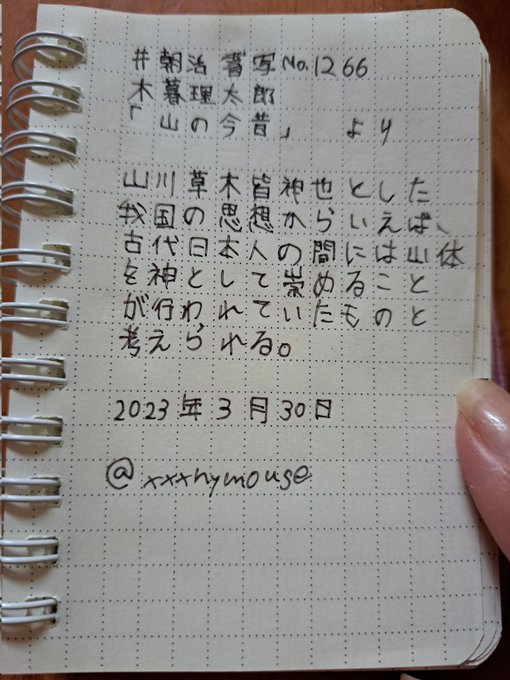 #朝活書写 No.1266
木暮理太郎
「山の今昔」 より
山川草木皆神也とした
我国の思想からいえば、
古代日本人の間には山体
を神として崇めること
が行われていたものと
考えられる。
2023年3月30日
@xxxhymouse